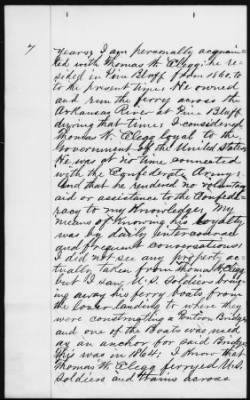 7
years; I am personally acquain-
ted with Thomas W. Clegg: he re-
sided in Pine Bluff from 1860, to
to the present time; He owned
and run the ferry across the
Arkansas River at Pine Bluff
during that time; I considered
Thomas W. Clegg loyal to the
Government of the United States
He was at no time connected
with the Confederate Army:
And that he rendered no voluntary
aid or assistance to the Confed-
racy to my Knowledge; My
means of knowing his loyalty
was by daily intercourse
and frequent conversations;
I did not see any property ac-
tually taken from Thomas W. Clegg
but I saw U.S. Soldiers bring-
ing away his ferry boats from
the lower landing to where they
were constructing a Pontoon Bridge
and one of the Boats was used
as an anchor for said Bridge
this was in 1864; I know that
Thomas W. Clegg ferryed U.S.
Soldiers and trains across